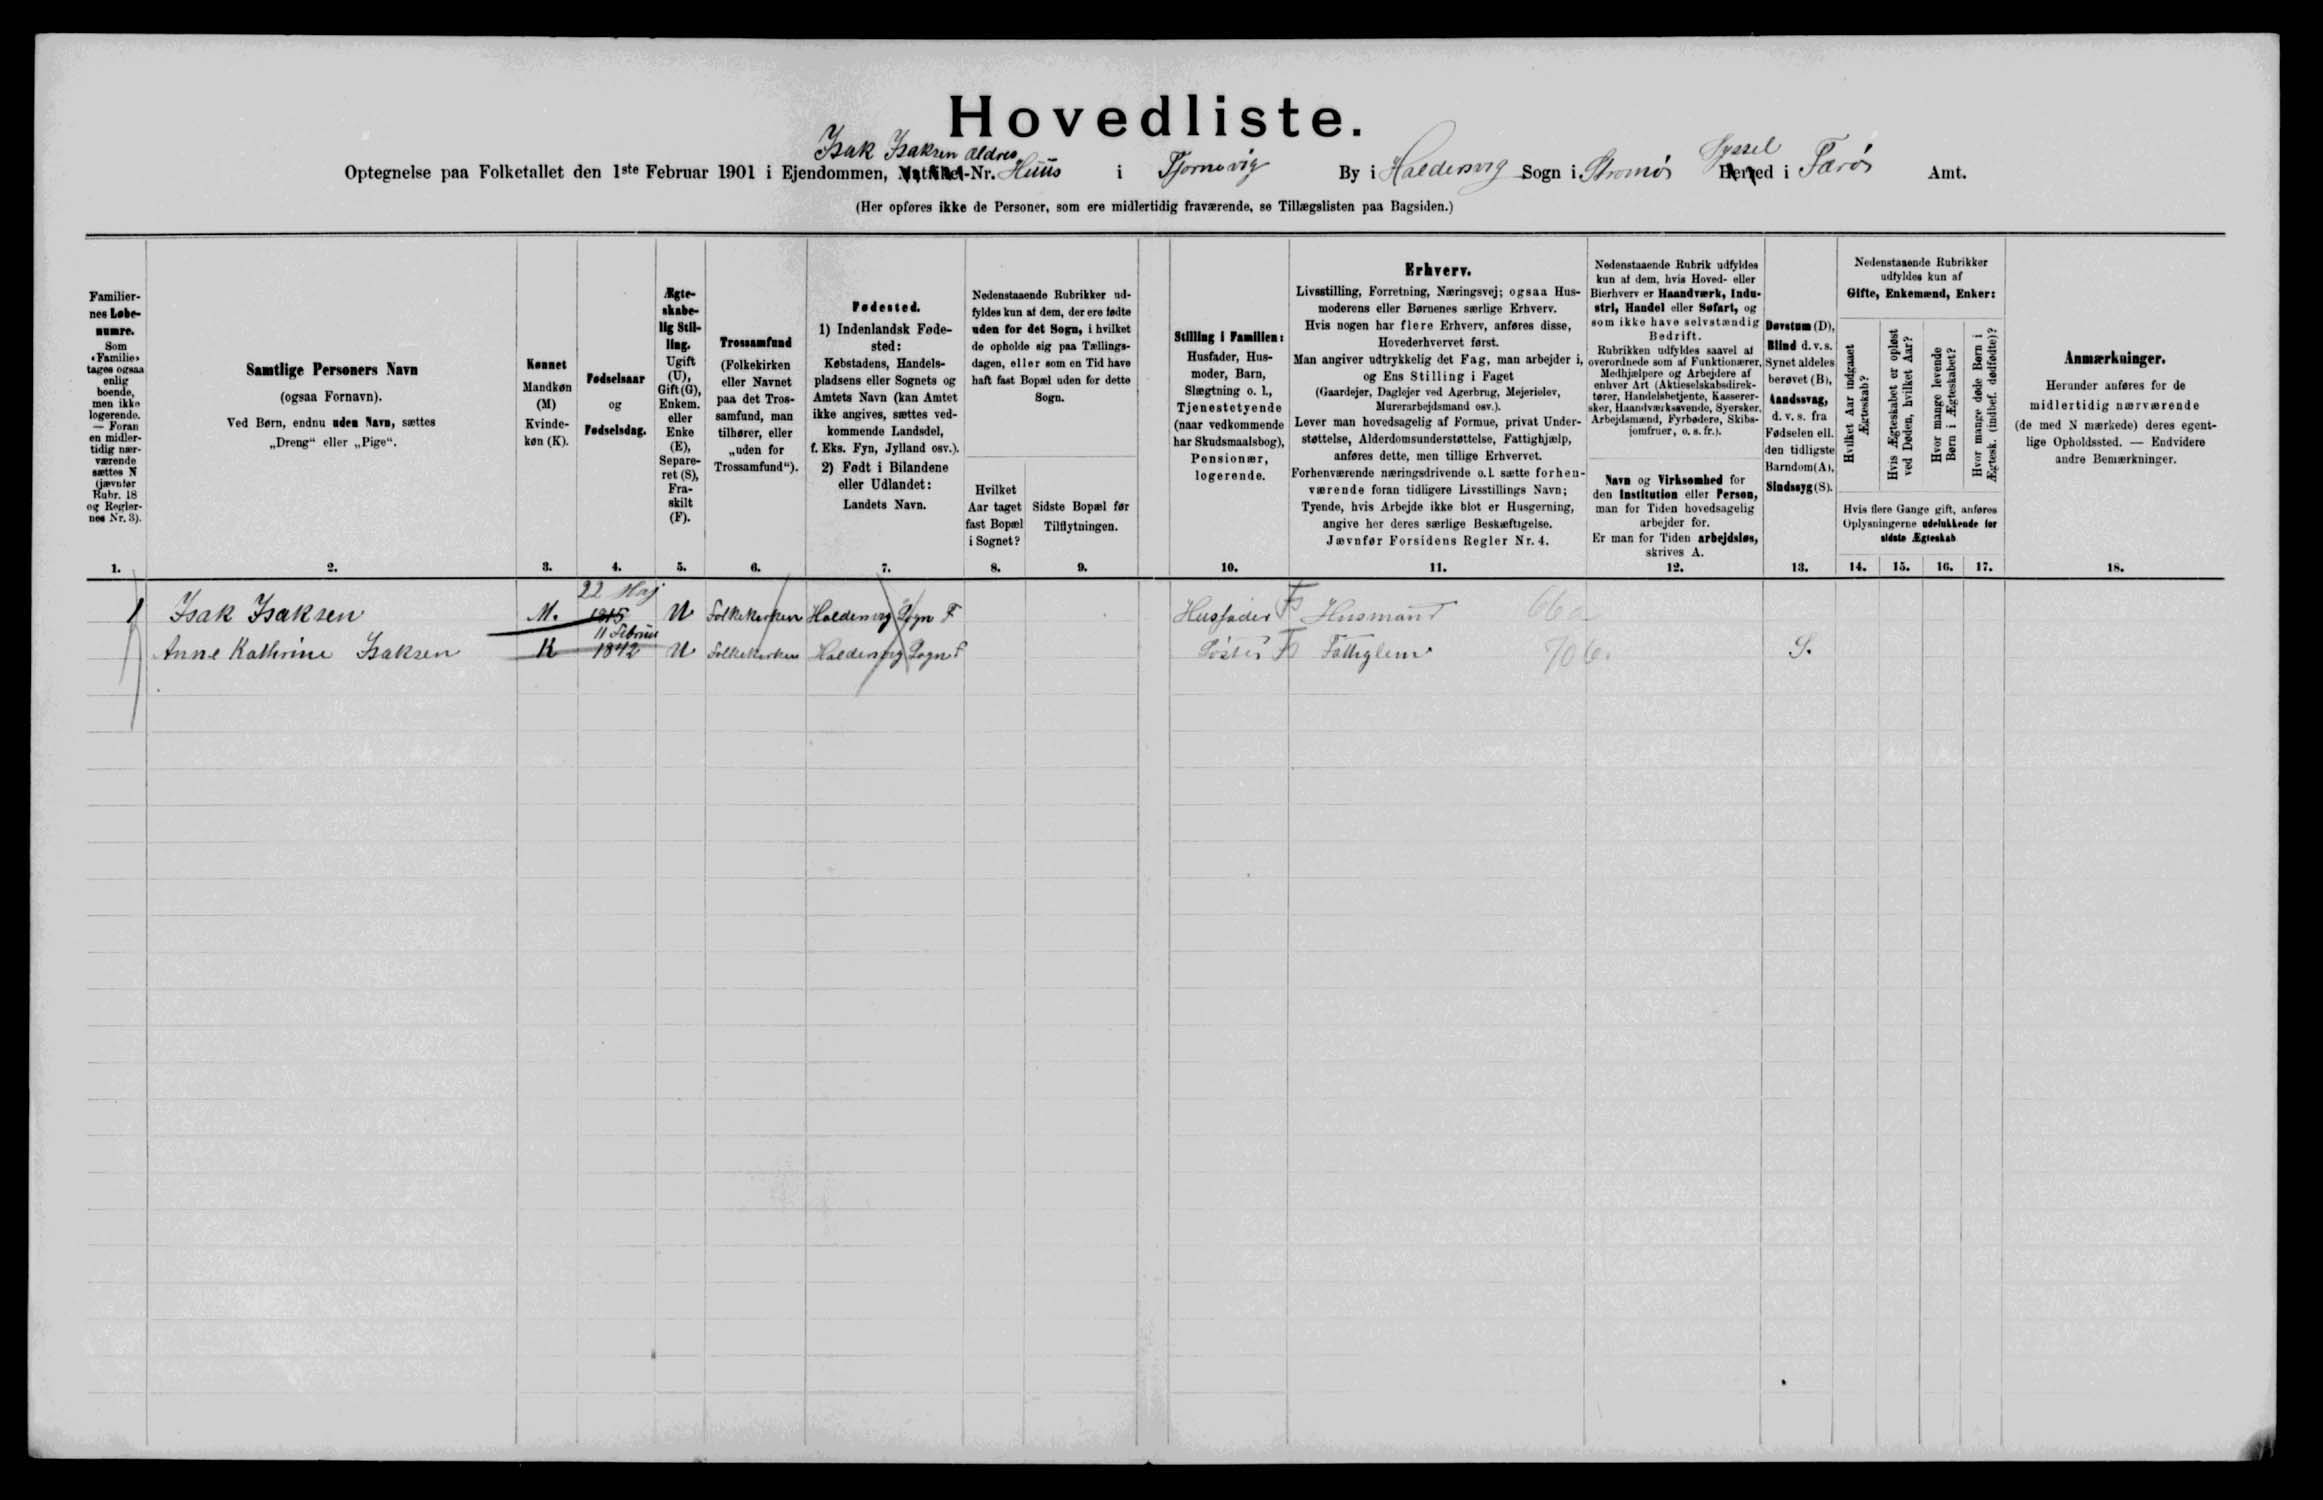 Hovedliste.
Isak Isaksen ældres
Optegnelse paa Folketallet den 1ste Februar 1901 i Ejendommen, Matrikel-Nr. Huus i Tjørnevig By i Haldersvig Sogn i Strømø Syssel Herred i Færø Amt.
(Her opføres ikke de Personer, som ere midlertidig fraværende, se Tillægslisten paa Bagsiden.)
Familier-
nes Løbe-
numre.
Som
«Familie»
tages ogsaa
enlig
boende,
men ikke
logerende.
— Foran
en midler-
tidig nær-
værende
sættes N
(jævnfør
Rubr. 18
og Regler-
nes Nr. 3).
1.
Samtlige Personers Navn
(ogsaa Fornavn).
Ved Børn, endnu uden Navn, sættes
„Dreng“ eller „Pige“.
2.
Kønnet
Mandkøn
(M)
Kvinde-
køn (K).
3.
Fødselsaar
og
Fødselsdag.
4.
Ægte-
skabe-
lig Stil-
ling.
Ugift
(U),
Gift (G),
Enkem.
eller
Enke
(E),
Separe-
ret (S),
Fra-
skilt
(F).
5.
Trossamfund
(Folkekirken
eller Navnet
paa det Tros-
samfund, man
tilhører, eller
„uden for
Trossamfund“).
6.
Fødested.
1) Indenlandsk Føde-
sted:
Købstadens, Handels-
pladsens eller Sognets og
Amtets Navn (kan Amtet
ikke angives, sættes ved-
kommende Landsdel,
f. Eks. Fyn, Jylland osv.).
2) Født i Bilandene
eller Udlandet:
Landets Navn.
7.
Nedenstaaende Rubrikker ud-
fyldes kun af dem, der ere fødte
uden for det Sogn, i hvilket
de opholde sig paa Tællings-
dagen, eller som en Tid have
haft fast Bopæl uden for dette
Sogn.
Hvilket
Aar taget
fast Bopæl
i Sognet?
8.
Sidste Bopæl før
Tilflytningen.
9.
Stilling i Familien:
Husfader, Hus-
moder, Barn,
Slægtning o. l.,
Tjenestetyende
(naar vedkommende
har Skudsmaalsbog),
Pensionær,
logerende.
10.
Erhverv.
Livsstilling, Forretning, Næringsvej; ogsaa Hus-
moderens eller Børnenes særlige Erhverv.
Hvis nogen har flere Erhverv, anføres disse,
Hovederhvervet først.
Man angiver udtrykkelig det Fag, man arbejder i,
og Ens Stilling i Faget
(Gaardejer, Daglejer ved Agerbrug, Mejerielev,
Murerarbejdsmand osv.).
Lever man hovedsagelig af Formue, privat Under-
støttelse, Alderdomsunderstøttelse, Fattighjælp,
anføres dette, men tillige Erhvervet.
Forhenværende næringsdrivende o. l. sætte forhen-
værende foran tidligere Livsstillings Navn;
Tyende, hvis Arbejde ikke blot er Husgerning,
angive her deres særlige Beskæftigelse.
Jævnfør Forsidens Regler Nr. 4.
11.
Nedenstaaende Rubrik udfyldes
kun af dem, hvis Hoved- eller
Bierhverv er Haandværk, Indu-
stri, Handel eller Søfart, og
som ikke have selvstændig
Bedrift.
Rubrikken udfyldes saavel af
overordnede som af Funktionærer,
Medhjælpere og Arbejdere af
enhver Art (Aktieselskabsdirek-
tører, Handelsbetjente, Kasserer-
sker, Haandværkssvende, Syersker,
Arbejdsmænd, Fyrbødere, Skibs-
jomfruer, o. s. fr.).
Navn og Virksomhed for
den Institution eller Person,
man for Tiden hovedsagelig
arbejder for.
Er man for Tiden arbejdsløs,
skrives A.
12.
Døvstum (D),
Blind d. v. s.
Synet aldeles
berøvet (B),
Aandssvag,
d. v. s. fra
Fødselen ell.
den tidligste
Barndom (A),
Sindssyg (S).
13.
Nedenstaaende Rubrikker
udfyldes kun af
Gifte, Enkemænd, Enker:
Hvilket Aar indgaaet
Ægteskab?
Hvis Ægteskabet er opløst
ved Døden, hvilket Aar?
Hvor mange levende
Børn i Ægteskabet?
Hvor mange døde Børn i
Ægtesk. (indbef. dødfødte)?
Hvis flere Gange gift, anføres
Oplysningerne udelukkende for
sidste Ægteskab
14. 15. 16. 17.
Anmærkninger.
Herunder anføres for de
midlertidig nærværende
(de med N mærkede) deres egent-
lige Opholdssted. — Endvidere
andre Bemærkninger.
18.
22 Maj
1 Isak Isaksen M. 1845 U Folkekirken Haldersvig Sogn F Husfader F Husmand 66a
11 Februar
Anne Kathrine Isaksen K 1842 U Folkekirken Haldersvig Sogn F Søster F Fattiglem 706. S.